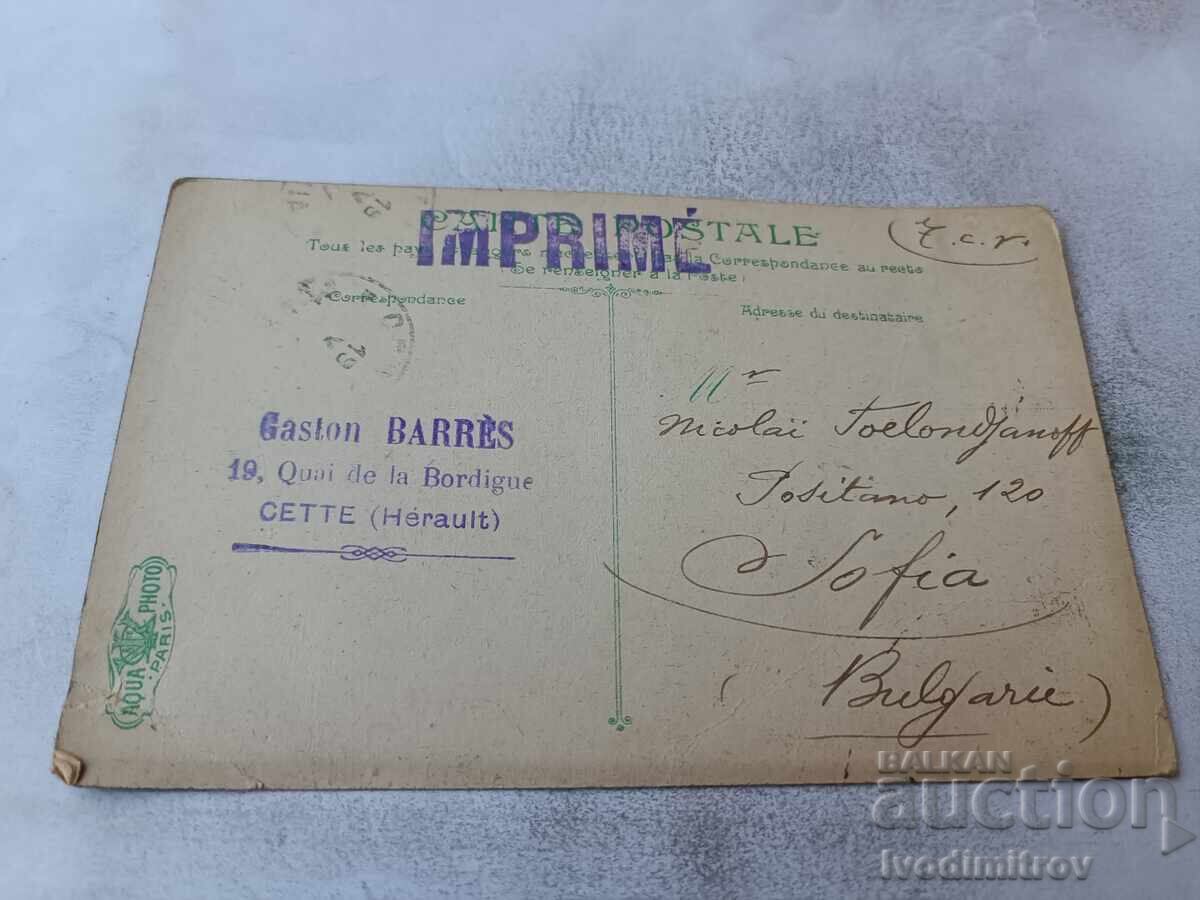 CARTE POSTALE
IMPRIMÉ
T.c.v.
Tous les pay Correspondance au recto
Se renseigner à la Poste
Correspondance
Adresse du destinataire
Gaston BARRÈS
19, Quai de la Bordigue
CETTE (Hérault)
Mr
Nicolaï Toelondjanoff
Positano, 120
Sofia
(Bulgarie)
AQUA PHOTO
PARIS
BALKAN
auction
Ivodimitrov